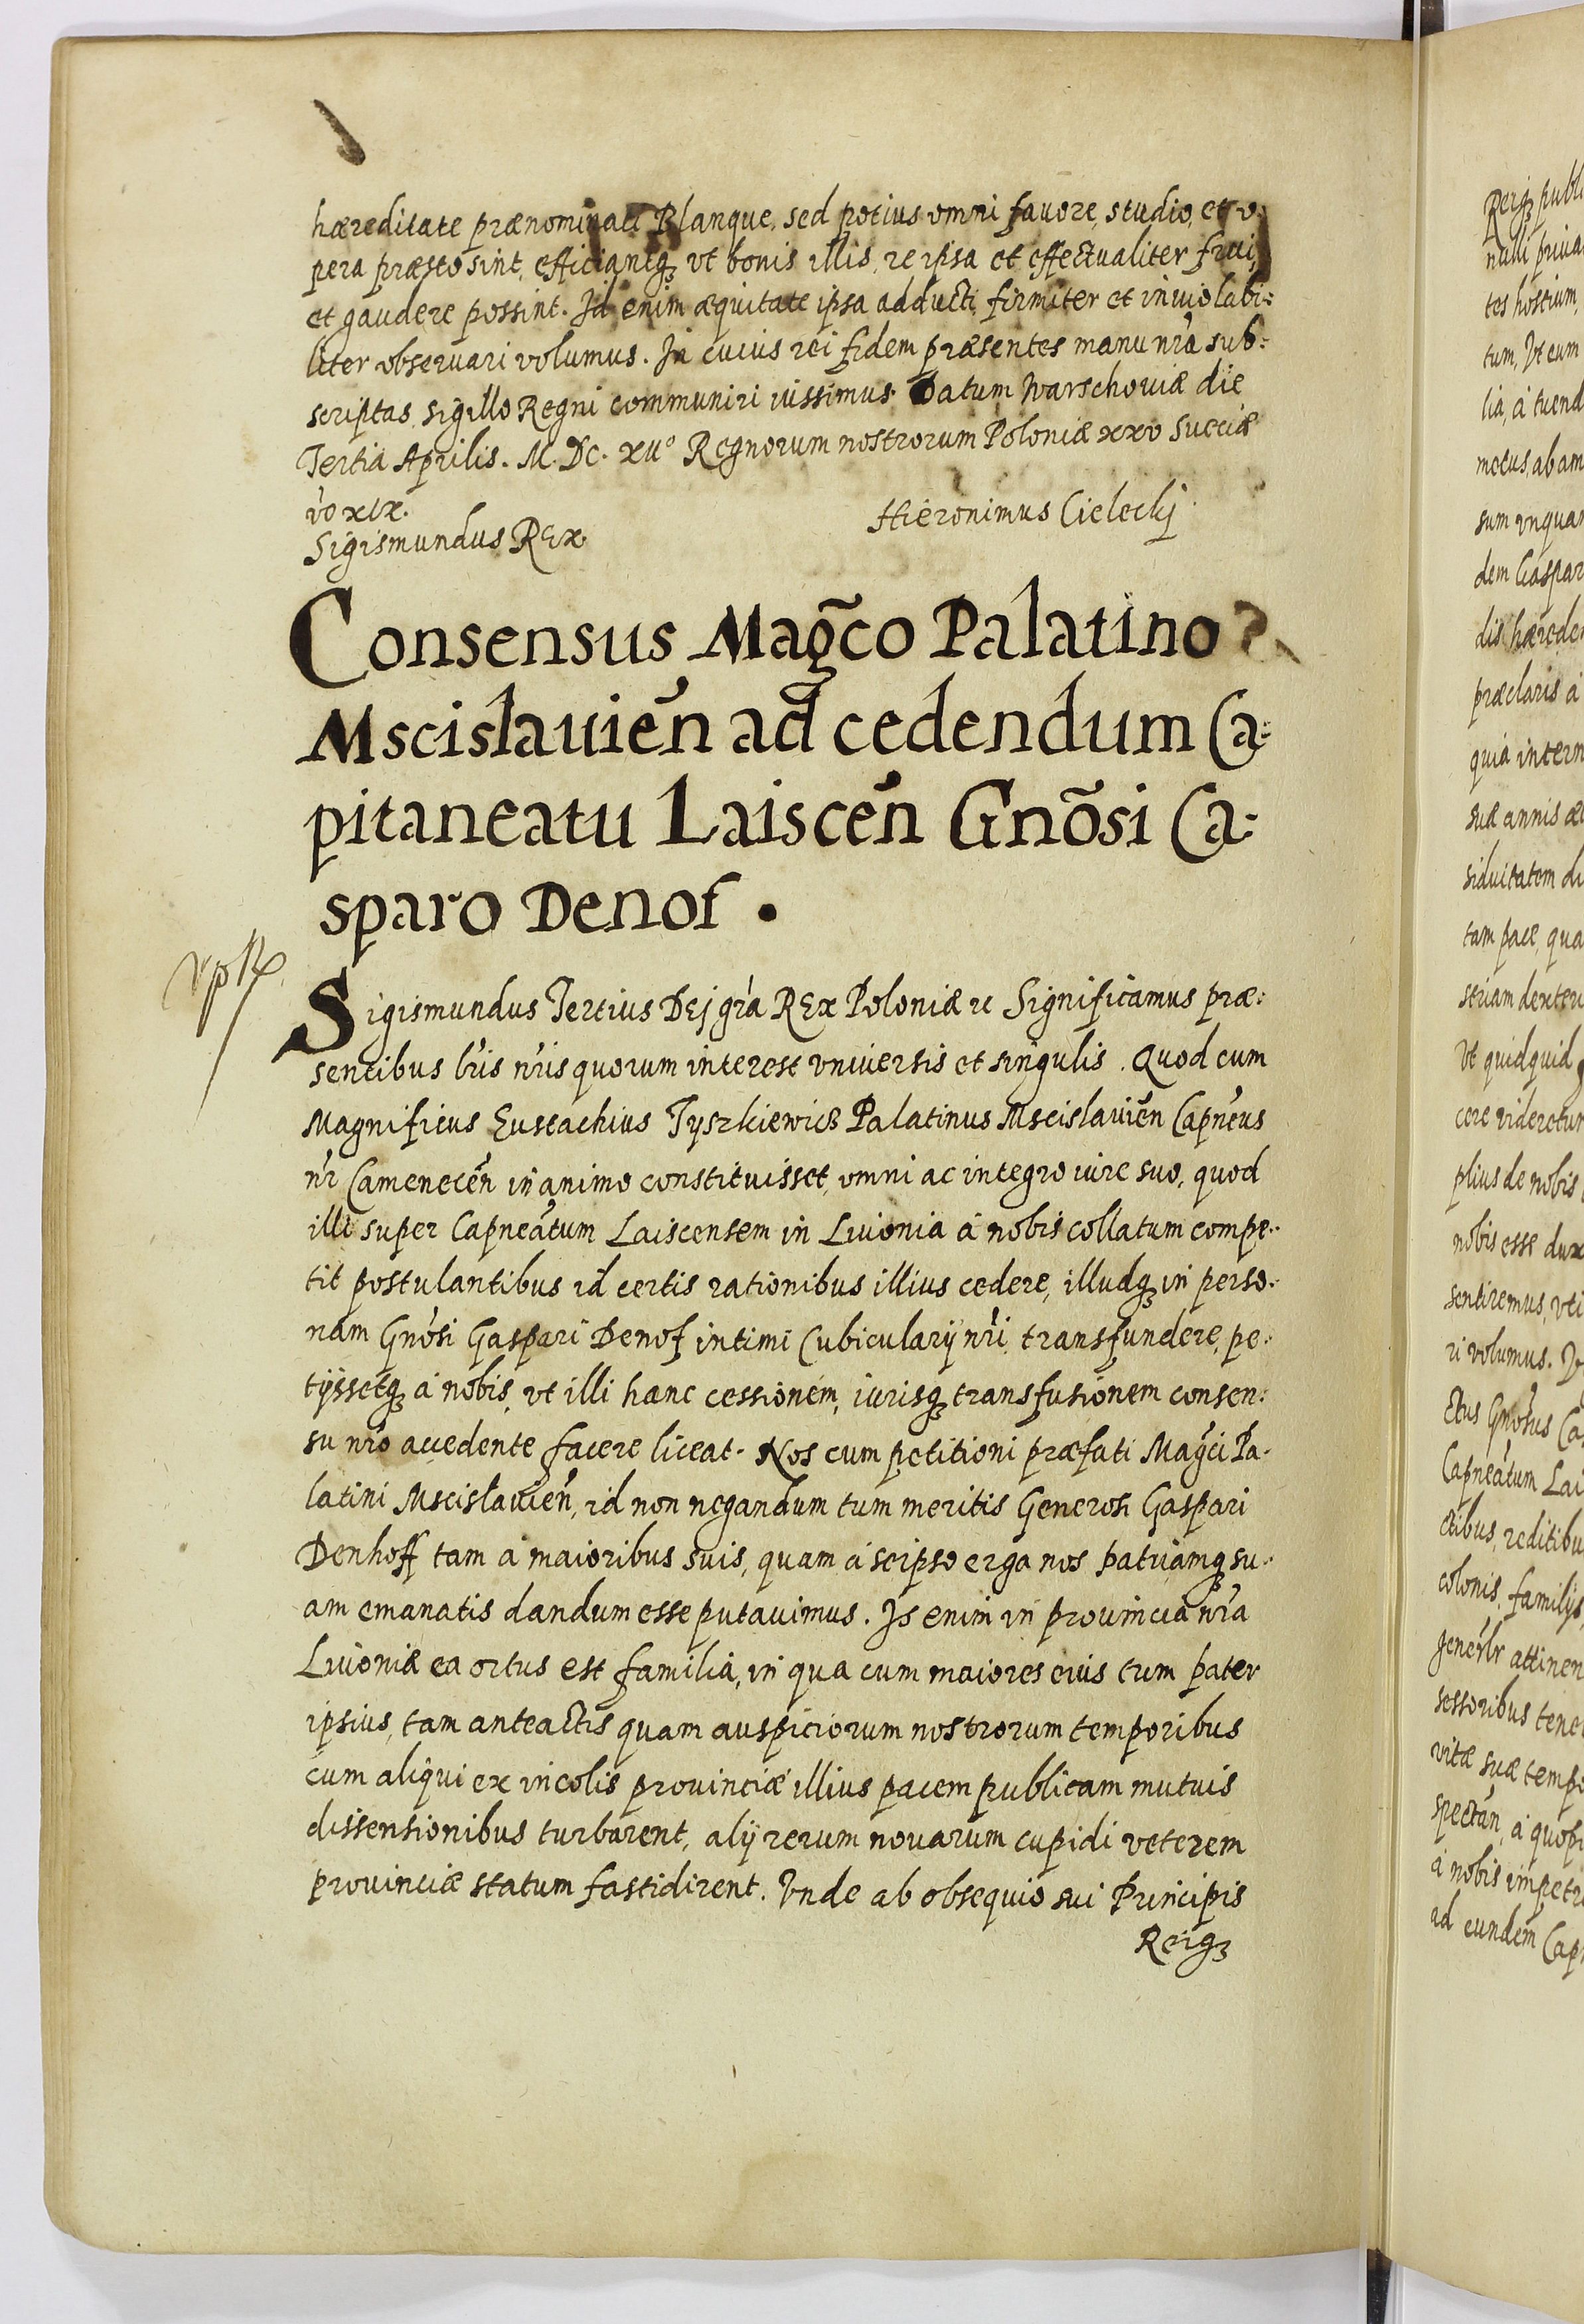 hæreditate prænominati Blanque, sed potius omni fauore, studio, et o:
pera præsto sint, efficiantqȝ vt bonis illis, re ipsa et effectualiter frui,
et gaudere possint. Id enim æquitate ipsa adducti firmiter et inuiolabi:
liter obseruari volumus. In cuius rei fidem præsentes manu nr̃a sub:
scriptas sigillo Regni communiri iussimus. Datum Warschoviæ die
Tertia Aprilis. M. DC. XII° Regnorum nostrorum Poloniæ xxv Sueciæ
vo xix.
Sigismundus REx.
Hieronimus Cieleckj
Consensus Mag̃co Palatino
Mscislauień ad cedendum Ca:
pitaneatu Laisceń Gnõsi Ca:
sparo Denof .
Sigismundus Tertius DEj gr̃a REx Poloniæ ꝛc Significamus præ:
sentibus lr̃is nr̃is quorum interest vniuersis et singulis. Quod cum
Magnificus Eustachius Tyszkiewicz Palatinus Mscislauień Capneus
nr̃ Cameneceń in animo constituisset, omni ac integro iure suo, quod
illi super Capneatum Laiscensem in Liuonia à nobis collatum compe:
tit postulantibus id certis rationibus illius cedere, illudqȝ in perso:
nam Gnõsi Gaspari Denof intimi Cubicularij nr̃i, transfundere, pe:
tijssetqȝ à nobis, vt illi hanc cessionem, iurisqȝ transfusionem consen:
su nr̃o accedente facere liceat. Nos cum petitioni præfati Mag̃ci Pa:
latini Mscislauień, id non negandum tum meritis Generosi Gaspari
Denhoff tam à maioribus suis, quam à seipso erga nos patriamqȝ su:
am emanatis dandum esse putauimus. Is enim in prouincia nr̃a
Liuoniæ ea ortus est familia, in qua cum maiores eius tum pater
ipsius, tam anteactis quam auspiciorum nostrorum temporibus
cum aliqui ex incolis prouinciæ illius pacem publicam mutuis
dissensionibus turbarent, alij rerum nouarum cupidi veterem
prouinciæ statum fastidirent. Vnde ab obsequio sui Principis
Reiqȝ
Reiqȝ publi
nulli priua
tes hostium,
tum, Vt eum
lia, à tuend
motus, ab am
sum vnquam
dem Gaspar
dis hæreder
præclaris à
quia intern
suæ annis æt
siduitatem di
tam pace, qua
striam dexteri
Vt quidquid
cere videretur
plius de nobis
nobis esse dux
sentiremus, vti
ri volumus. D
ctus Gnõsus Ca
Capneatum Lai
ctibus, reditibu
colonis, familijs
generlr attinen
sessoribus tene
vitæ suæ tempo
spectań, à quop
à nobis impetr
id eundem Cap